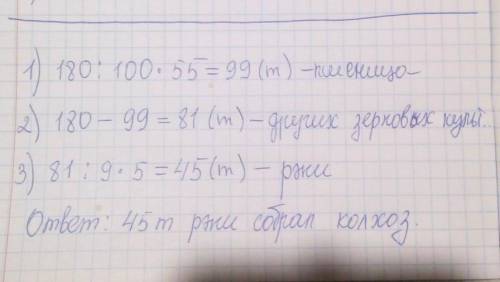 1) 180 : 100 · 55 = 99 (т) – пшеница
2) 180 – 99 = 81 (т) – других зерновых культ.
3) 81 : 9 · 5 = 45 (т) – ржи
Ответ: 45 т ржи собрал колхоз.